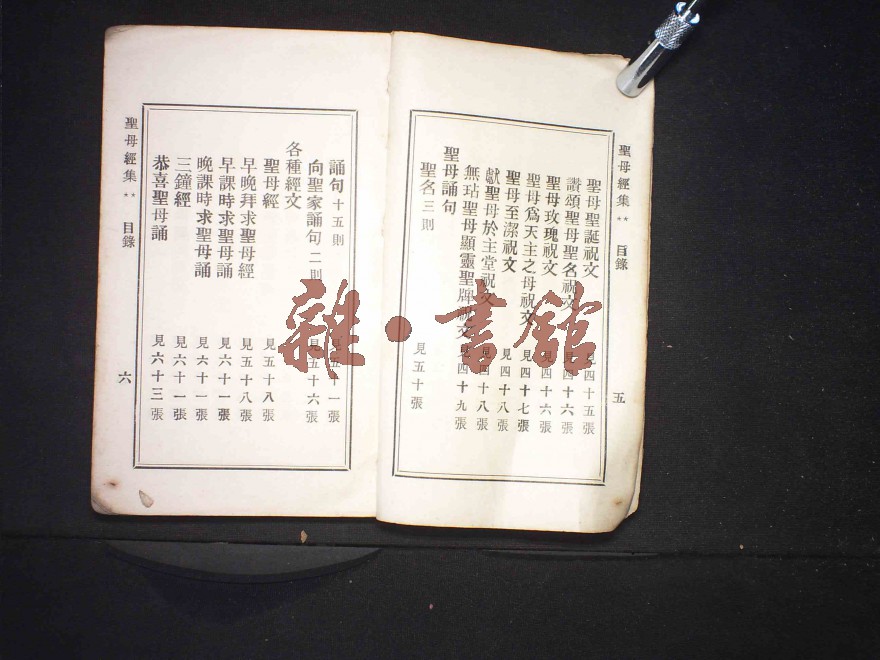 聖母經集 ** 目錄 五
聖母聖誕祝文 見四十五張
讚頌聖母聖名祝文 見四十六張
聖母玫瑰祝文 見四十六張
聖母爲天主之母祝文 見四十七張
聖母至潔祝文 見四十八張
獻聖母於主堂祝文 見四十八張
無玷聖母顯靈聖牌祝文 見四十九張
聖母誦句
聖名三則 見五十張
誦句十五則 見五十一張
向聖家誦句二則 見五十六張
各種經文
聖母經 見五十八張
早晚拜求聖母經 見五十八張
早課時求聖母誦 見六十一張
晚課時求聖母誦 見六十一張
三鐘經 見六十一張
恭喜聖母誦 見六十三張
聖母經集 ** 目錄 六
雜·書館